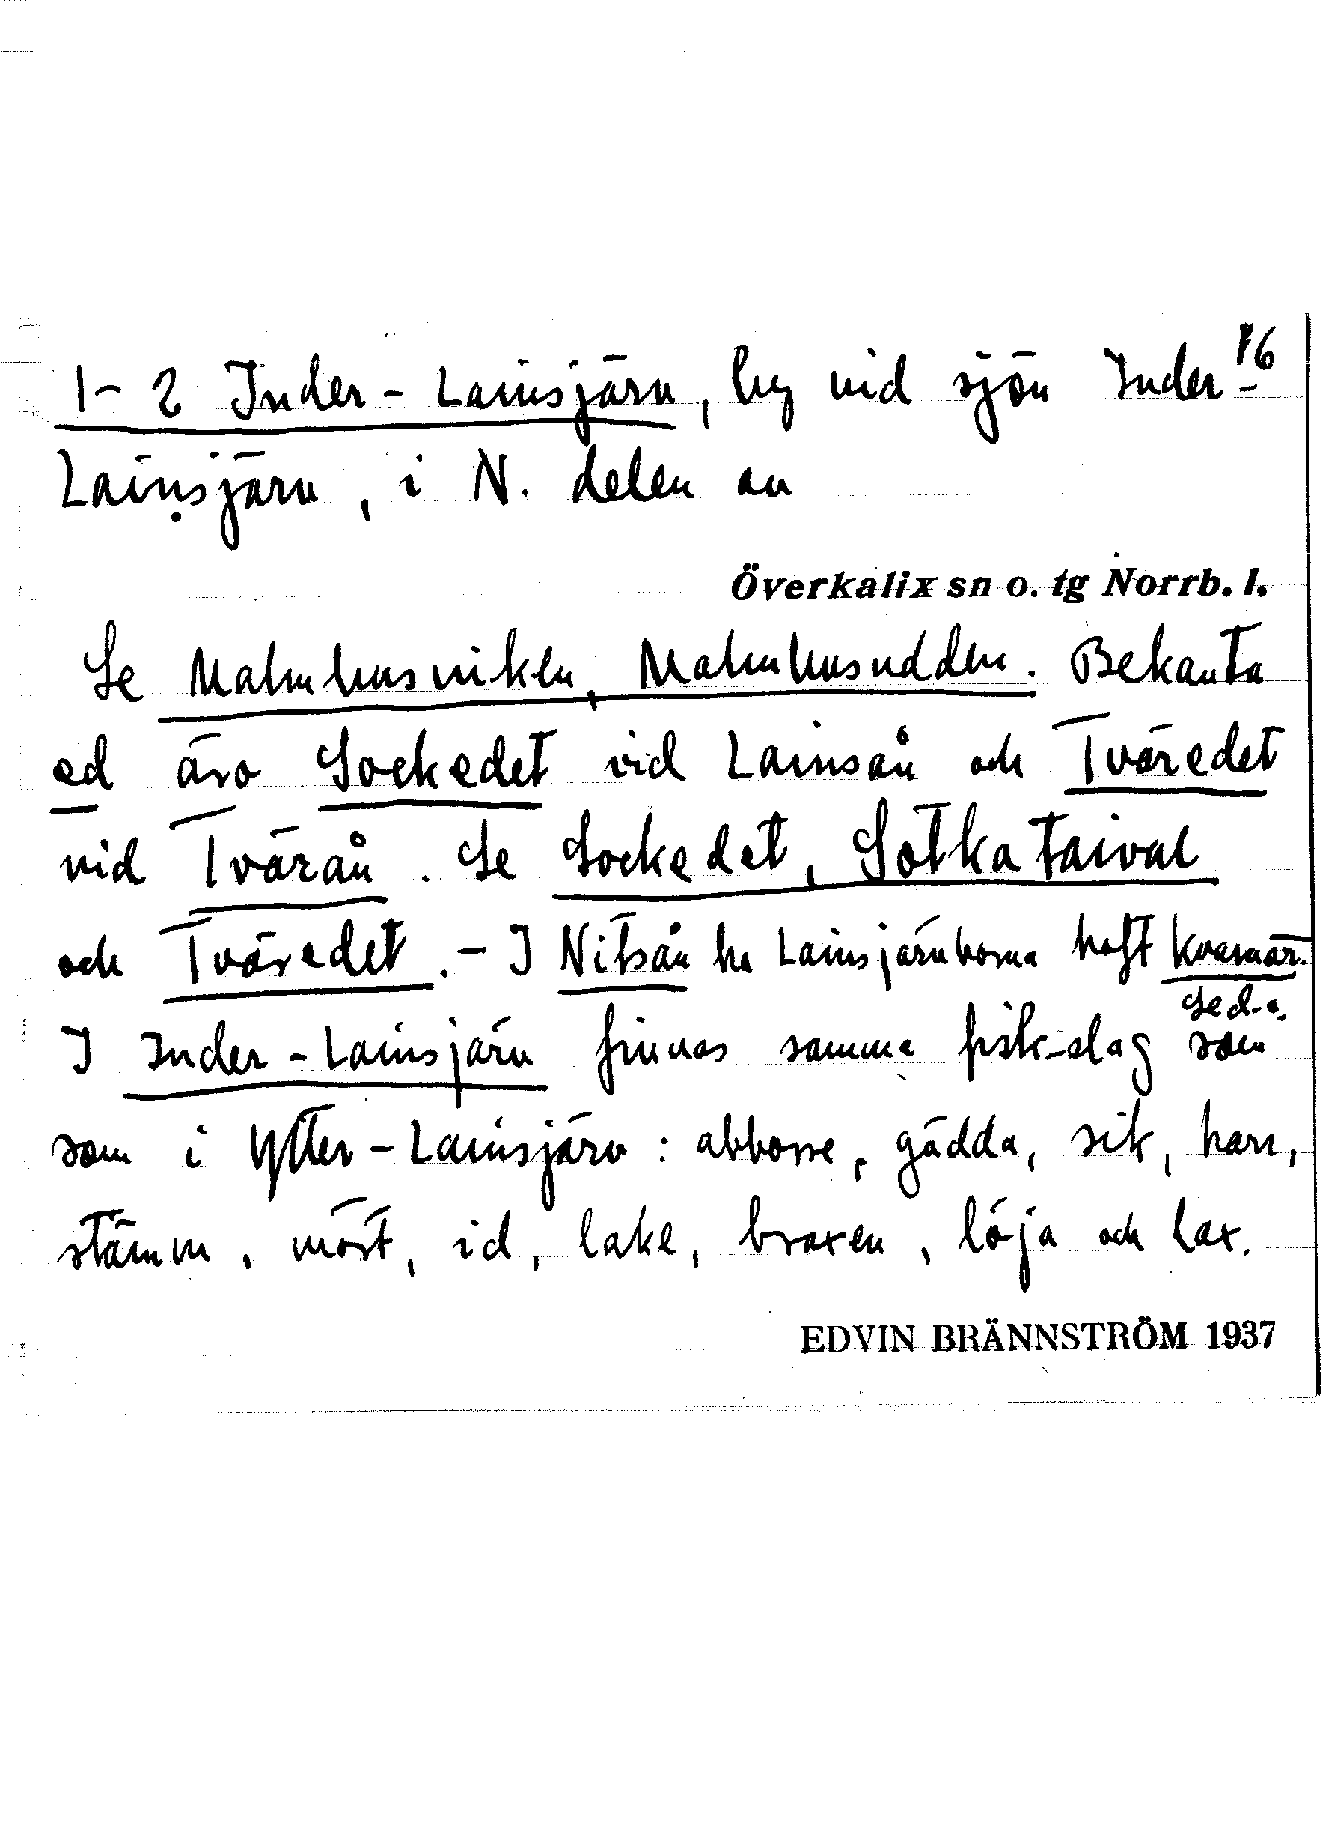 16
1-2 Inder-Lainsjärv, by vid sjön Inder-
Lainsjärv, i N. delen av
Överkalix sn o. tg Norrb. l.
Se Malmhusviken, Malmhusudden. Bekanta
ed äro Sockedet vid Lainsån och Tväredet
vid Tvärån. Se Sockedet, Sotkataival
och Tväredet. - I Nitsån ha Lainsjärvborna haft kvarnar.
Se d.o.
I Inder-Lainsjärv finnas samma fisk-slag som
som i Ytter-Lainsjärv: abborre, gädda, sik, harr,
stämm, mört, id, lake, braxen, löja och lax.
EDVIN BRÄNNSTRÖM 1937